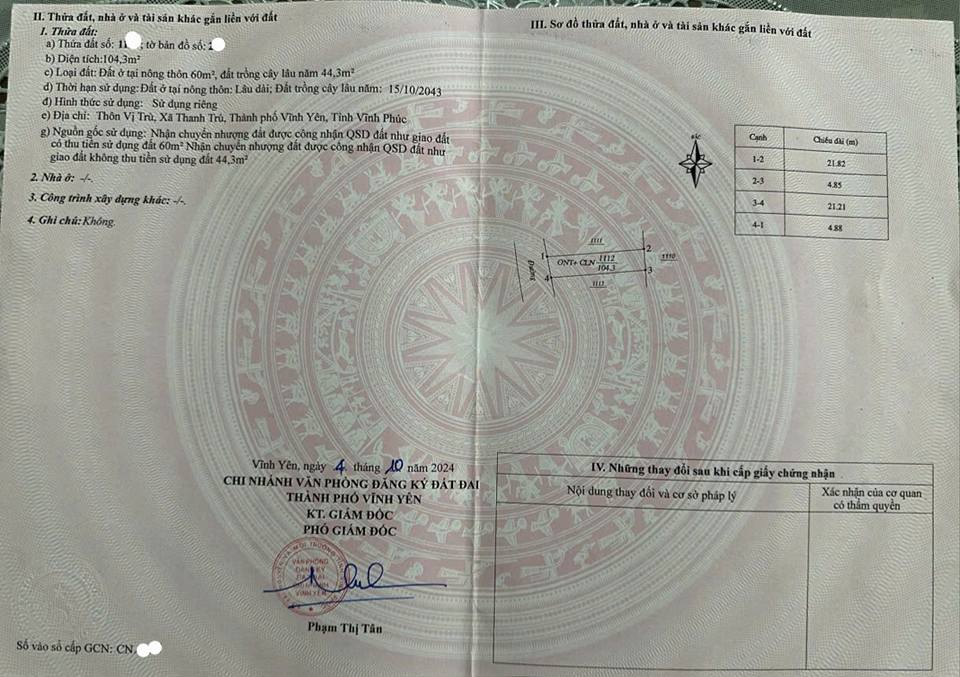 II. Thửa đất, nhà ở và tài sản khác gắn liền với đất
1. Thửa đất:
a) Thửa đất số: 11 ; tờ bản đồ số: 2
b) Diện tích:104,3m²
c) Loại đất: Đất ở tại nông thôn 60m², đất trồng cây lâu năm 44,3m²
d) Thời hạn sử dụng:Đất ở tại nông thôn: Lâu dài; Đất trồng cây lâu năm: 15/10/2043
đ) Hình thức sử dụng: Sử dụng riêng
e) Địa chỉ: Thôn Vị Trù, Xã Thanh Trù, Thành phố Vĩnh Yên, Tỉnh Vĩnh Phúc
g) Nguồn gốc sử dụng: Nhận chuyển nhượng đất được công nhận QSD đất như giao đất
có thu tiền sử dụng đất 60m² Nhận chuyển nhượng đất được công nhận QSD đất như
giao đất không thu tiền sử dụng đất 44,3m²
2. Nhà ở: -/-.
3. Công trình xây dựng khác: -/-.
4. Ghi chú: Không.
Vĩnh Yên, ngày 4 tháng 10 năm 2024
CHI NHÁNH VĂN PHÒNG ĐĂNG KÝ ĐẤT ĐAI
THÀNH PHỐ VĨNH YÊN
KT. GIÁM ĐỐC
PHÓ GIÁM ĐỐC
VĂN PHÒNG
ĐĂNG KÝ
VĨNH YÊN
Phạm Thị Tân
Số vào sổ cấp GCN: CN
III. Sơ đồ thửa đất, nhà ở và tài sản khác gắn liền với đất
BẮC
Cạnh Chiều dài (m)
1-2 21.82
2-3 4.85
3-4 21.21
4-1 4.88
Đường
1111
1 2
ONT+ CLN 1112
104.3
1110
4 3
1113
IV. Những thay đổi sau khi cấp giấy chứng nhận
Nội dung thay đổi và cơ sở pháp lý
Xác nhận của cơ quan
có thẩm quyền